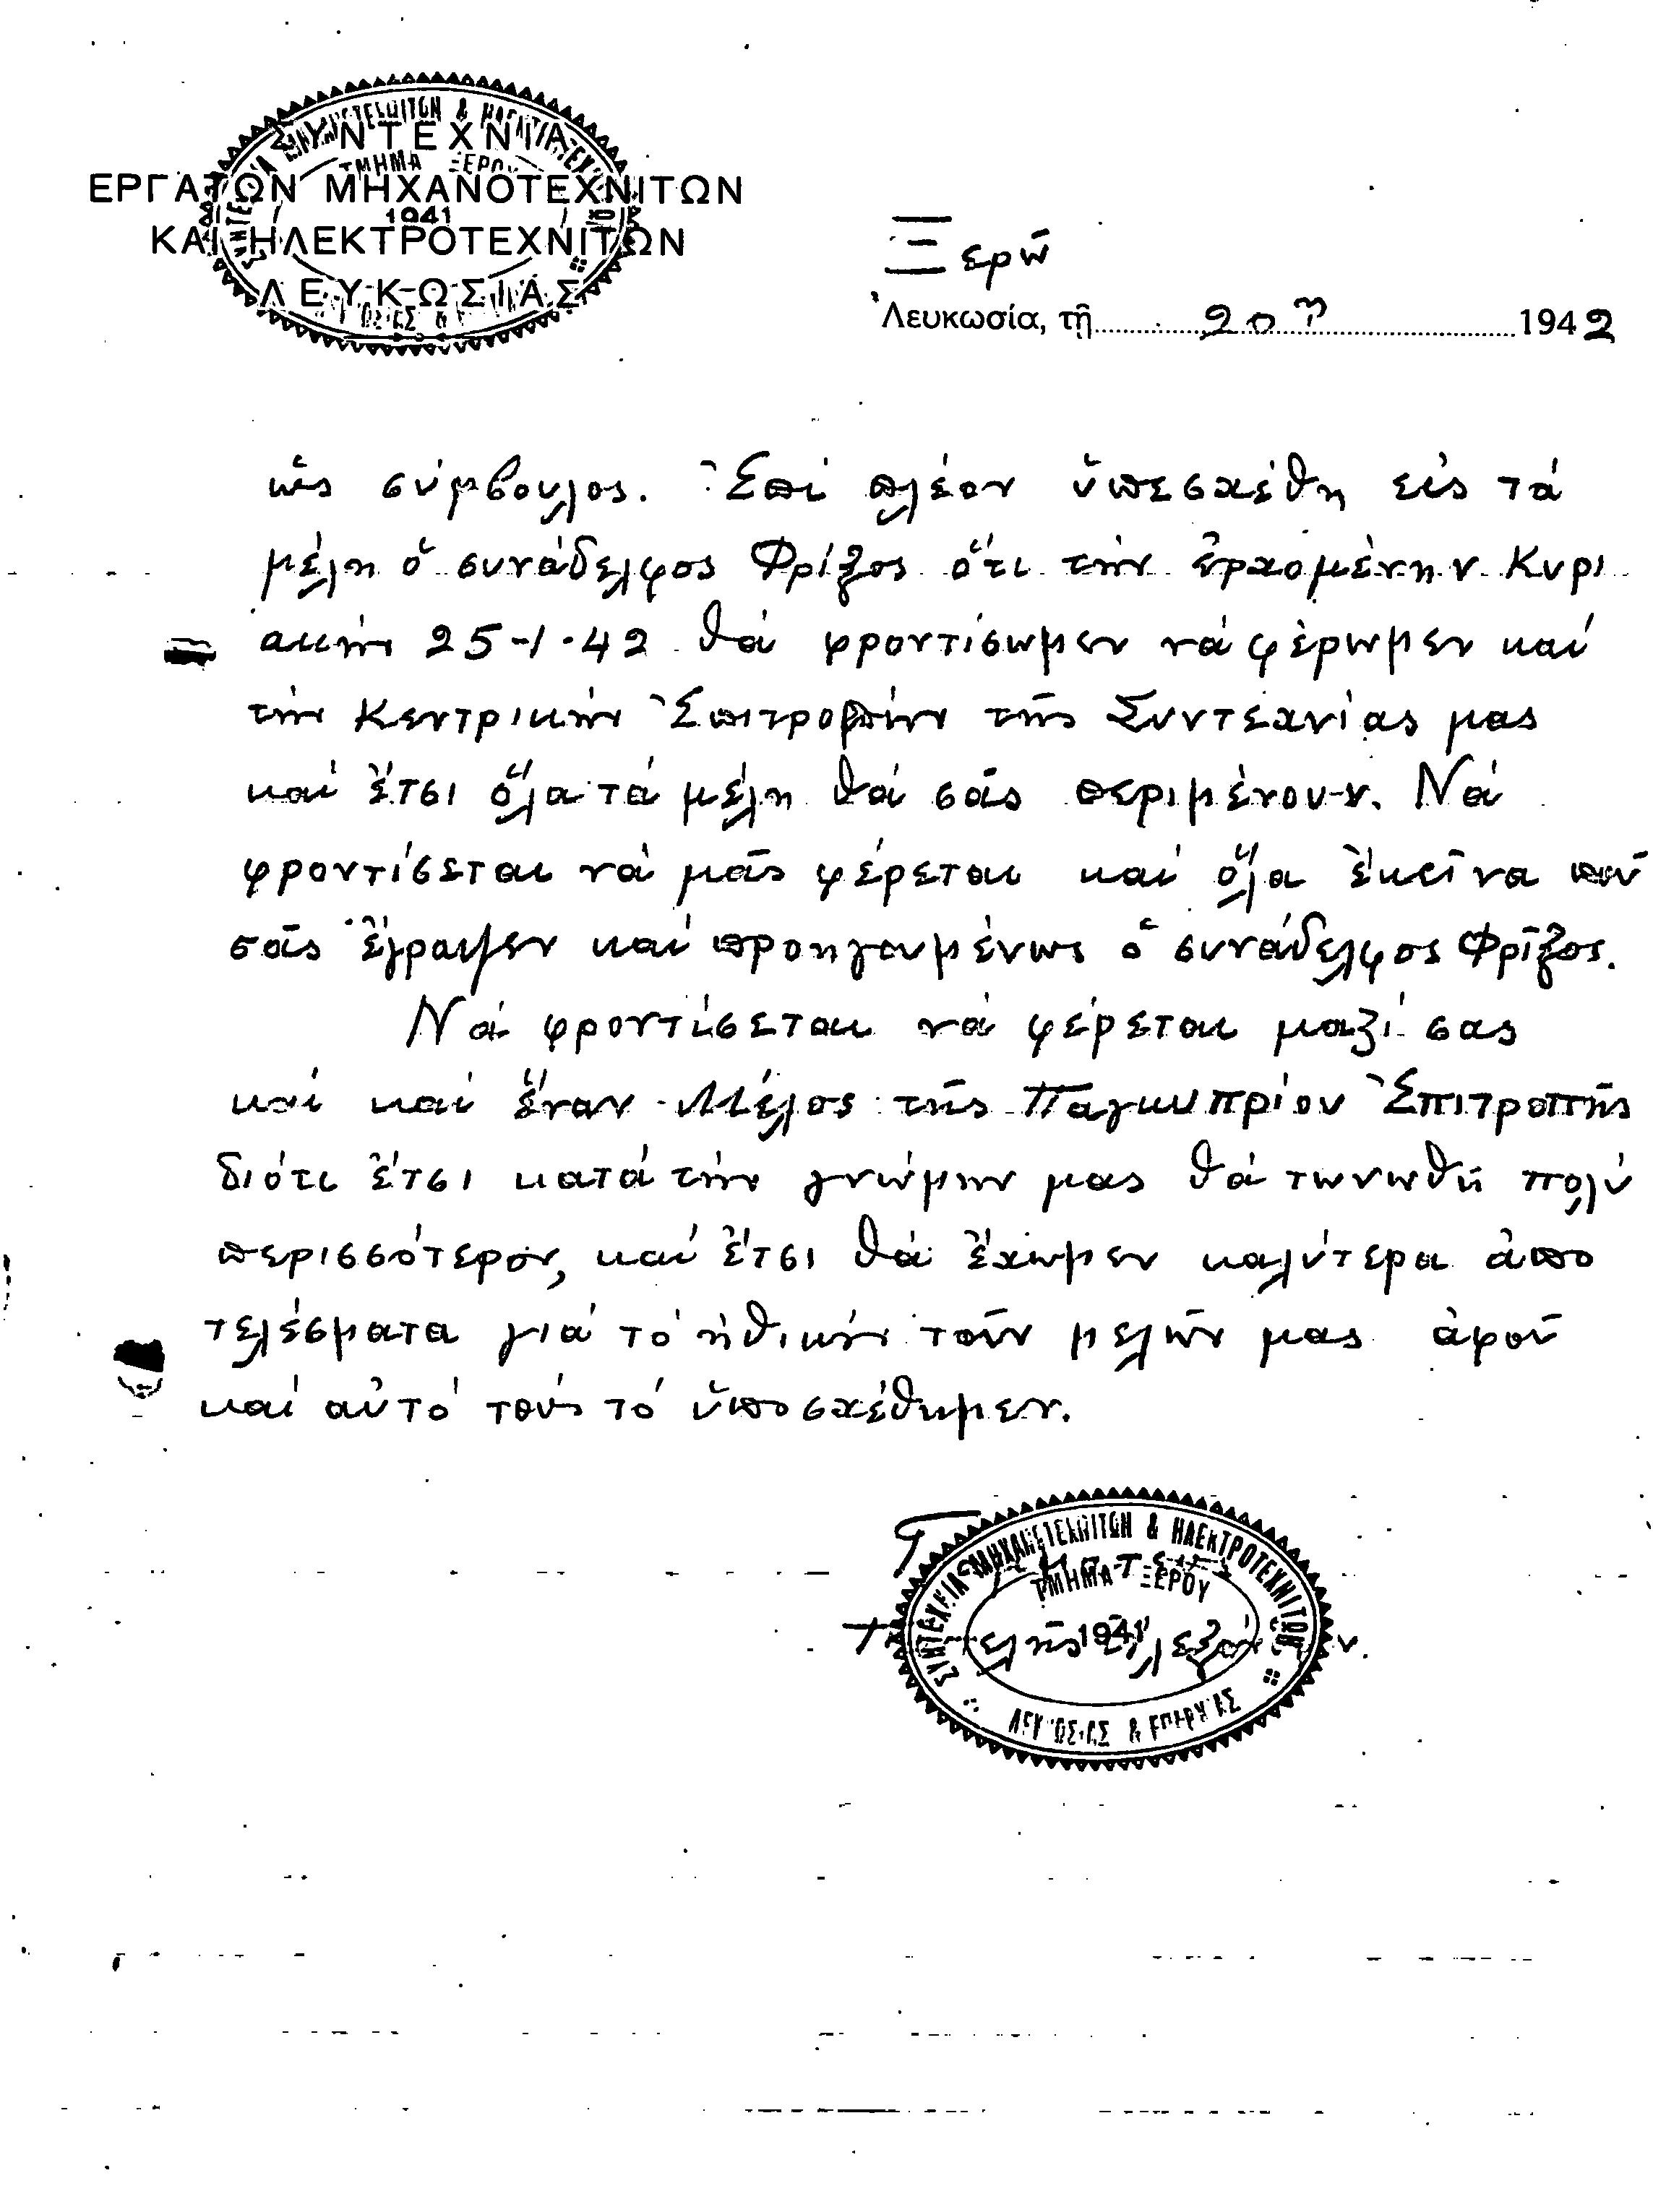 ΣΥΝΤΕΧΝΙΑ
ΕΡΓΑΤΩΝ ΜΗΧΑΝΟΤΕΧΝΙΤΩΝ
ΚΑΙ ΗΛΕΚΤΡΟΤΕΧΝΙΤΩΝ
ΛΕΥΚΩΣΙΑΣ
ΤΜΗΜΑ ΞΕΡΟΥ
1941
Ξερῶ
Λευκωσία, τῇ 20 1942
ὡς σύμβουλος. Ἐπί πλέον ὑπεσχέθη εἰς τά
μέλη ὁ συνάδελφος Φρίξος ὅτι τήν ἐρχομένην Κυρι
ακήν 25-1-42 θά φροντίσωμεν νά φέρωμεν καί
τήν Κεντρικήν Ἐπιτροπήν τῆς Συντεχνίας μας
καί ἔτσι ὅλα τά μέλη θά σᾶς περιμένουν. Νά
φροντίσεται νά μᾶς φέρεται καί ὅλα ἐκεῖνα ποῦ
σᾶς ἔγραψεν καί προηγουμένως ὁ συνάδελφος Φρῖξος.
Νά φροντίσεται νά φέρεται μαζί σας
καί καί ἕναν Μέλος τῆς Παγκυπρίου Ἐπιτροπῆς
διότι ἔτσι κατά τήν γνώμην μας θά τωνωθῆ πολύ
περισσότερον, καί ἔτσι θά ἔχωμεν καλύτερα ἀπο
τελέσματα γιά τό ἠθικήν τοῦν μελῶν μας ἀφοῦ
καί αὐτό τούς τό ὑποσχέθημεν.
ΣΥΝΤΕΧΝΕΙΑ ΜΗΧΑΝΟΤΕΧΝΙΤΩΝ & ΗΛΕΚΤΡΟΤΕΧΝΙΤΩΝ
ΤΜΗΜΑ ΞΕΡΟΥ
1941
ΛΕΥΚΩΣΙΑΣ & ΕΠΑΡΧΙΑΣ